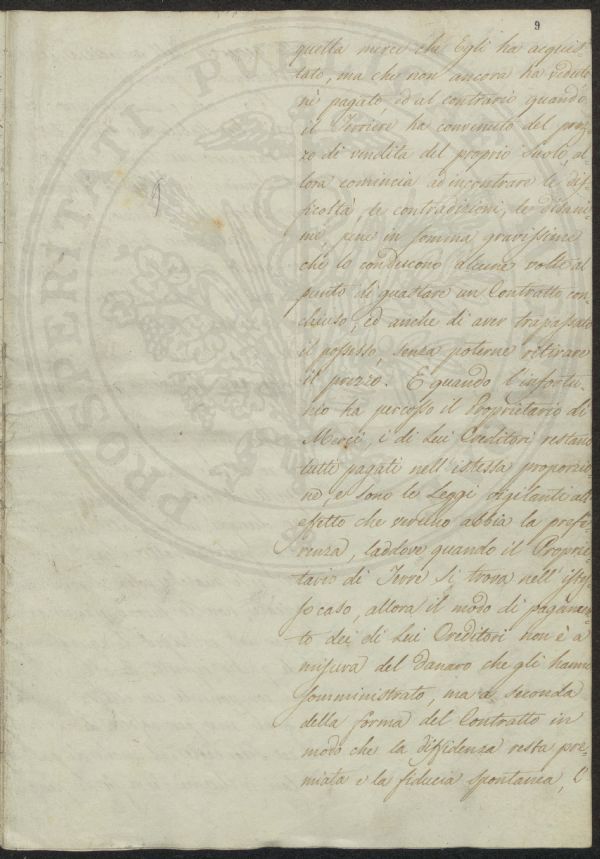 9
quella merce che Egli ha acquis-
tato, ma che non ancora ha veduto
nè pagato ed al contrario quando
il Terriere ha convenuto del prez-
zo di vendita del proprio suolo, al
lora comincia ad incontrare le dif-
ficoltà, le contradizioni, le disani-
me, pene in somma gravissime
che lo conducono alcune volte al
punto di guastare un Contratto con-
chiuso, ed anche di aver trapassato
il possesso, senza poterne ritirare
il prezzo. E quando l'infortu-
nio ha percosso il Proprietario di
Merci, i di Lui Creditori restano
tutti pagati nell'istessa proporzio-
ne, e sono le Leggi vigilanti all'
effetto che veruno abbia la prefe-
renza, laddove quando il Proprie-
tario di Terre si trova nell'istes-
so caso, allora il modo di pagamen-
to dei di Lui Creditori non è a
misura del danaro che gli hanno
somministrato, ma a seconda
della forma del Contratto in
modo che la diffidenza resta pre-
miata e la fiducia spontanea, e
PROSPERITATI PVBLICAE